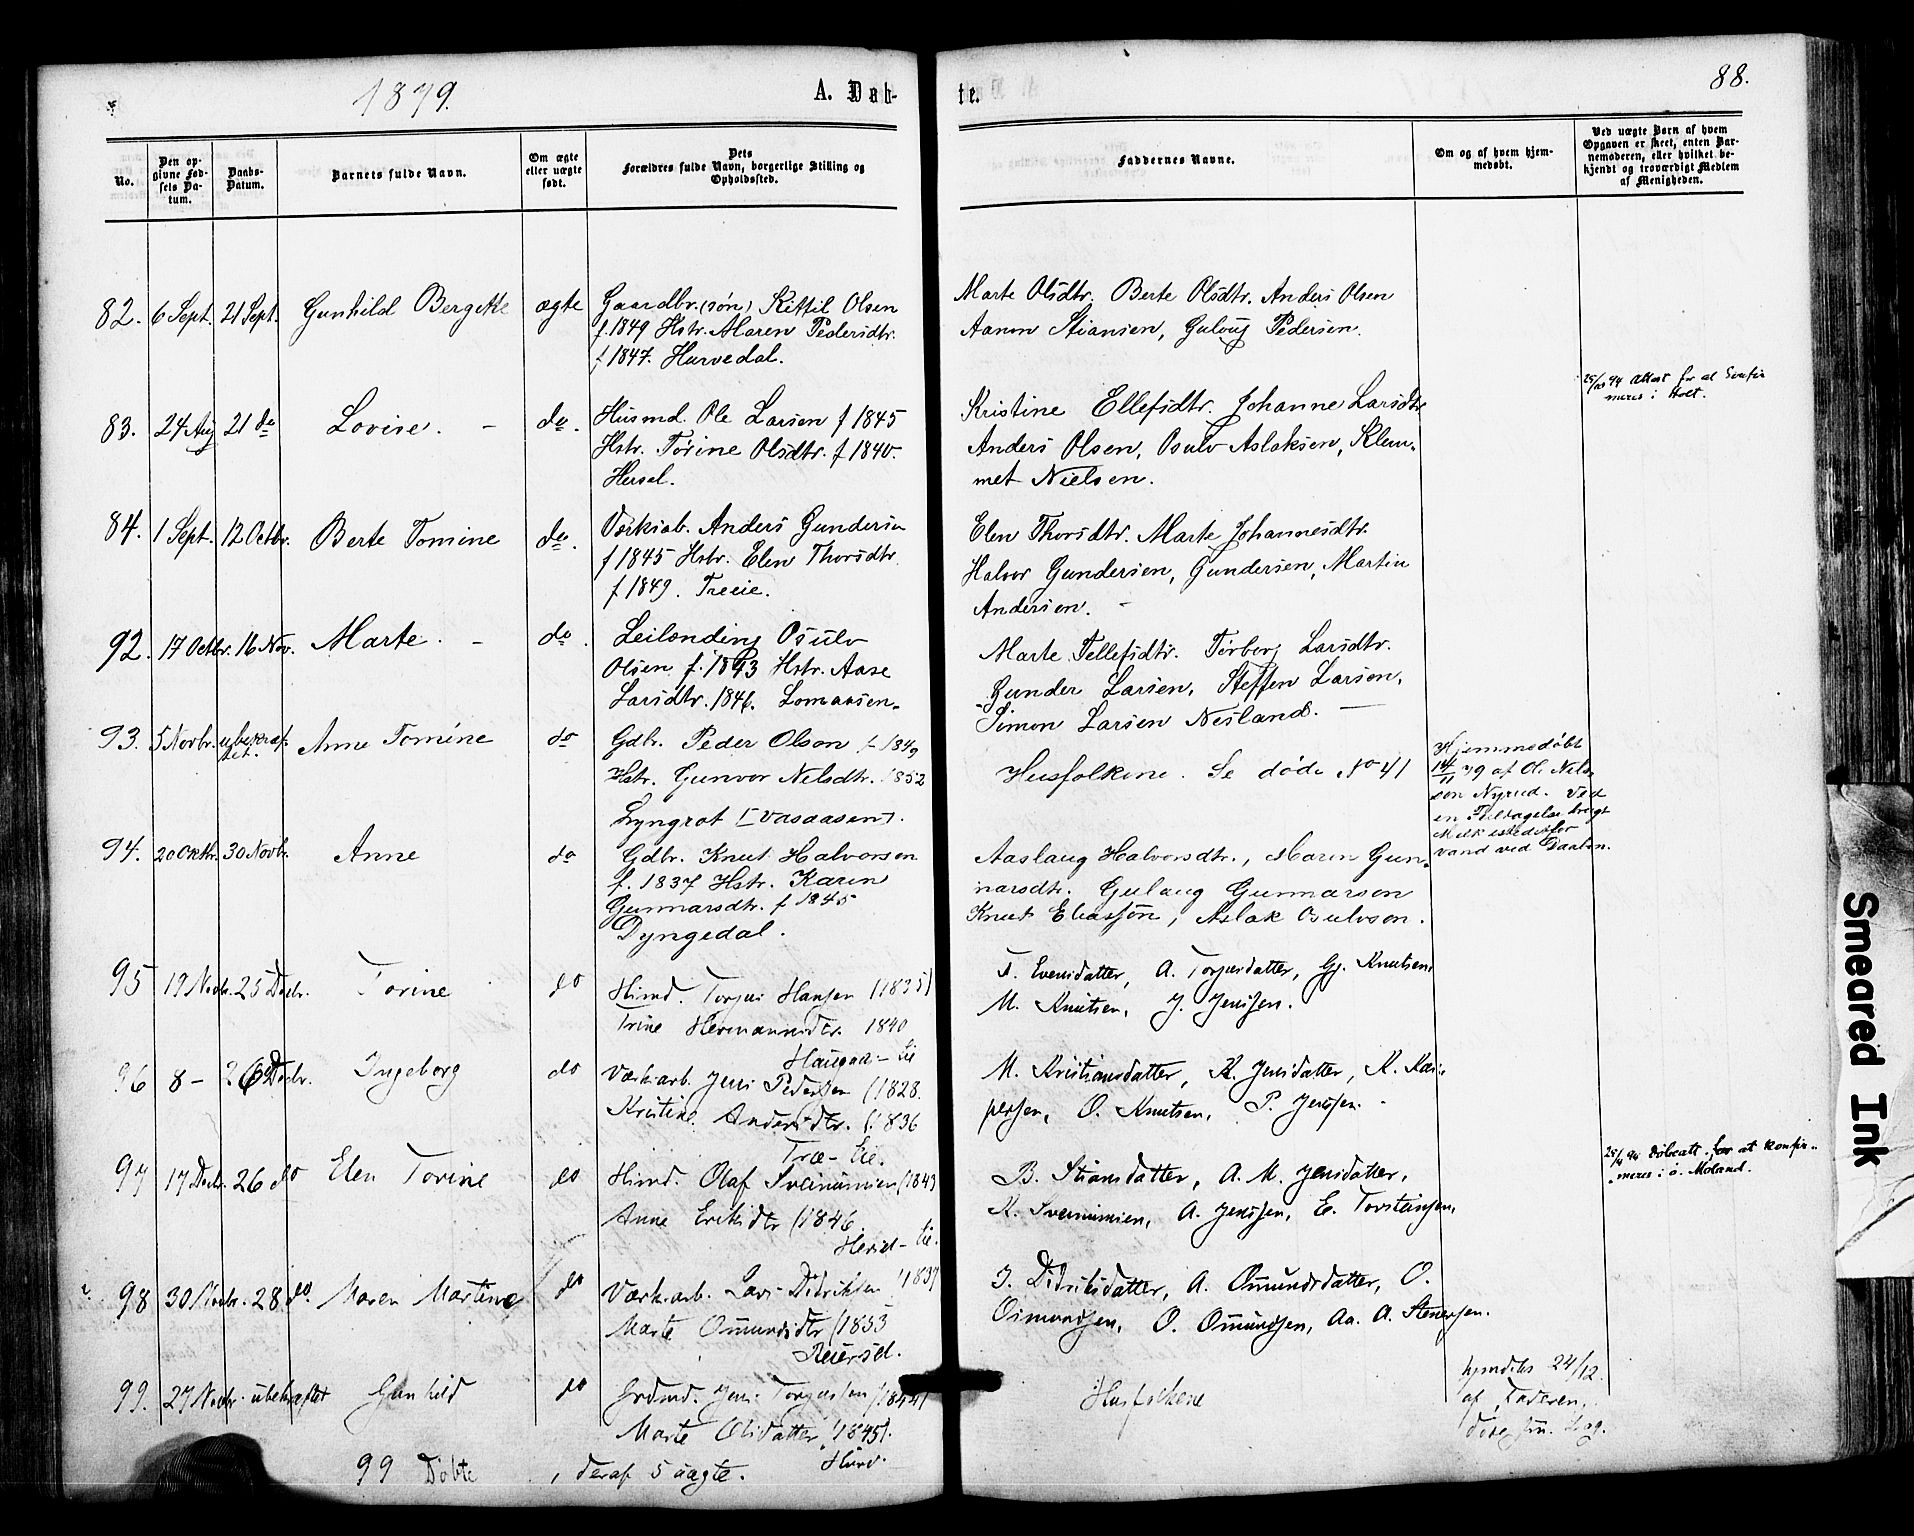 1879. A. Døb- te. 88.
No. | Den opgivne Fødsels Datum. | Daabs-Datum. | Barnets fulde Navn. | Om ægte eller uægte født. | Dets Forældres fulde Navn, borgerlige Stilling og Opholdssted. | Faddernes Navne. | Om og af hvem hjemmedøbt. | Ved uægte Børn af hvem Opgaven er skeet, enten Barnemoderen, eller hvilket bekjendt og troværdigt Medlem af Menigheden.
82. 6 Sept. 21 Sept. Gunhild Bergitte ægte Gaardbr. (søn) Kittil Olsen
f. 1849 Hstr. Maren Pedersdtr.
f. 1847. Hurvedal.
Marte Olsdtr. Berte Olsdtr. Anders Olsen
Aanon Stiansen, Guloug Pedersen.
83. 24 Aug 21 do Lovise. – do. Husmd. Ole Larsen f 1845
Hstr. Tørine Olsdtr. f 1840.
Hersel.
Kristine Ellefsdtr. Johanne Larsdtr
Anders Olsen, Osulv Aslaksen, Klem-
met Nielsen.
94 Attest for at konfir
meres i Holt.
84. 1 Sept. 12 Octbr. Berte Tomine do. Verksab. Anders Gundersen
f 1845 Hstr. Elen Thorsdtr.
f 1849. Treeie.
Elen Thorsdtr. Marte Johannesdtr.
Halvor Gundersen, Gundersen, Martin
Andersen. –
92. 17 Octbr. 16 Nov. Marte. – do. Leilænding Osulv
Olsen f. 1843 Hstr. Aase
Larsdtr. 1846. Lomaasen.
Marte Tellefsdtr. Torborg Larsdtr.
Gunder Larsen, Steffen Larsen,
Simon Larsen Nesland. –
93. 5 Novbr. ubekræf-
tet. Anne Tomine do Gdbr. Peder Olson f. 1849
Hstr. Gunvor Nilsdtr. 1852
Lyngrot [Vasaasen].
Husfolkene. Se døde No 41
Hjemmedøbt
14/11 79 af O. Nils-
son Nyrud. Ved
en Feiltagelse brugt
Melk istedetfor
vand ved Daaben.
94. 20 Oktbr. 30 Novbr. Anne do Gdbr. Knut Halvorson
f. 1837 Hstr. Karen
Gunnarsdtr. f 1845
Dyngedal.
Aaslaug Halvorsdtr., Maren Gun-
narsdtr. Gulaug Gunnarson
Knut Eliassøn, Aslak Osulvson.
95 19 Novbr. 25 Decbr. Torine do Himd. Torjus Hansen (1835)
Trine Hermannsdtr. 1840
Haugaa-eie
T. Evensdatter, A. Torjusdatter, Gj. Knutsen,
M. Knutsen, J. Jenssen.
96 8 – 26 Decbr. Ingeborg do Værk.arb. Jens Pedersen (1828.
Kristine Andersdtr. (1836
Træ-Eie.
M. Kristiansdatter, K. Jensdatter, K. Kas-
persen, O. Knutsen, P. Jenssen.
97 17 Decbr. 26 do Elen Torine do Himd. Olaf Sveinumsen (1843
Anne Eriksdtr (1846.
Hersel-Eie.
B. Stiansdatter, A. M. Jensdatter,
K. Sveinumsen, A. Jenssen, E. Torsteinsen,
94 Døbeatt. for at konfir-
meres i Ø. Moland.
98 30 Novbr. 28 do. Maren Martine do Værk.arb. Lars Didriksen (1837
Marte Omundsdtr (1853
Reiersel.
I. Didriksdatter, A. Omundsdatter, O.
Osmundsen, O. Omundsen, Aa. A. Stenersen.
99. 27 Novbr. ubekræftet Gunhild do Jordmd. Jens Torjussen (1844)
Marte Olsdatter (1845).
Hurv.
Husfolkene
hjmdøbt 24/12.
af Faderen,
døde sm. Dag.
99 Døbte, deraf 5 uægte.
Smeared Ink